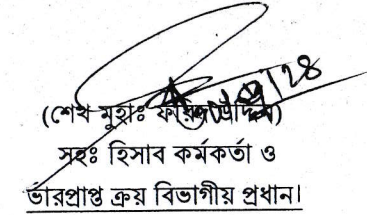 (শেখ মুহাঃ ফরিদ উদ্দিন)
সহঃ হিসাব কর্মকর্তা ও
ভারপ্রাপ্ত ক্রয় বিভাগীয় প্রধান।